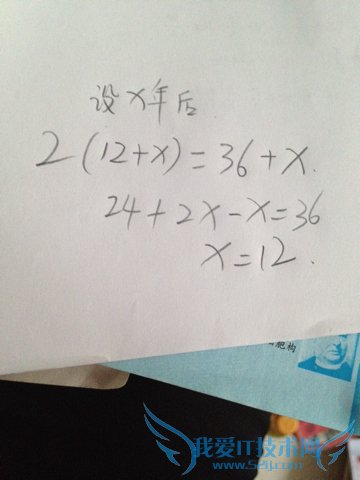 设x年后
2(12+x)=36+x.
24+2x-x=36
x=12.
胞构
我爱IT技术网
www.52ij.com